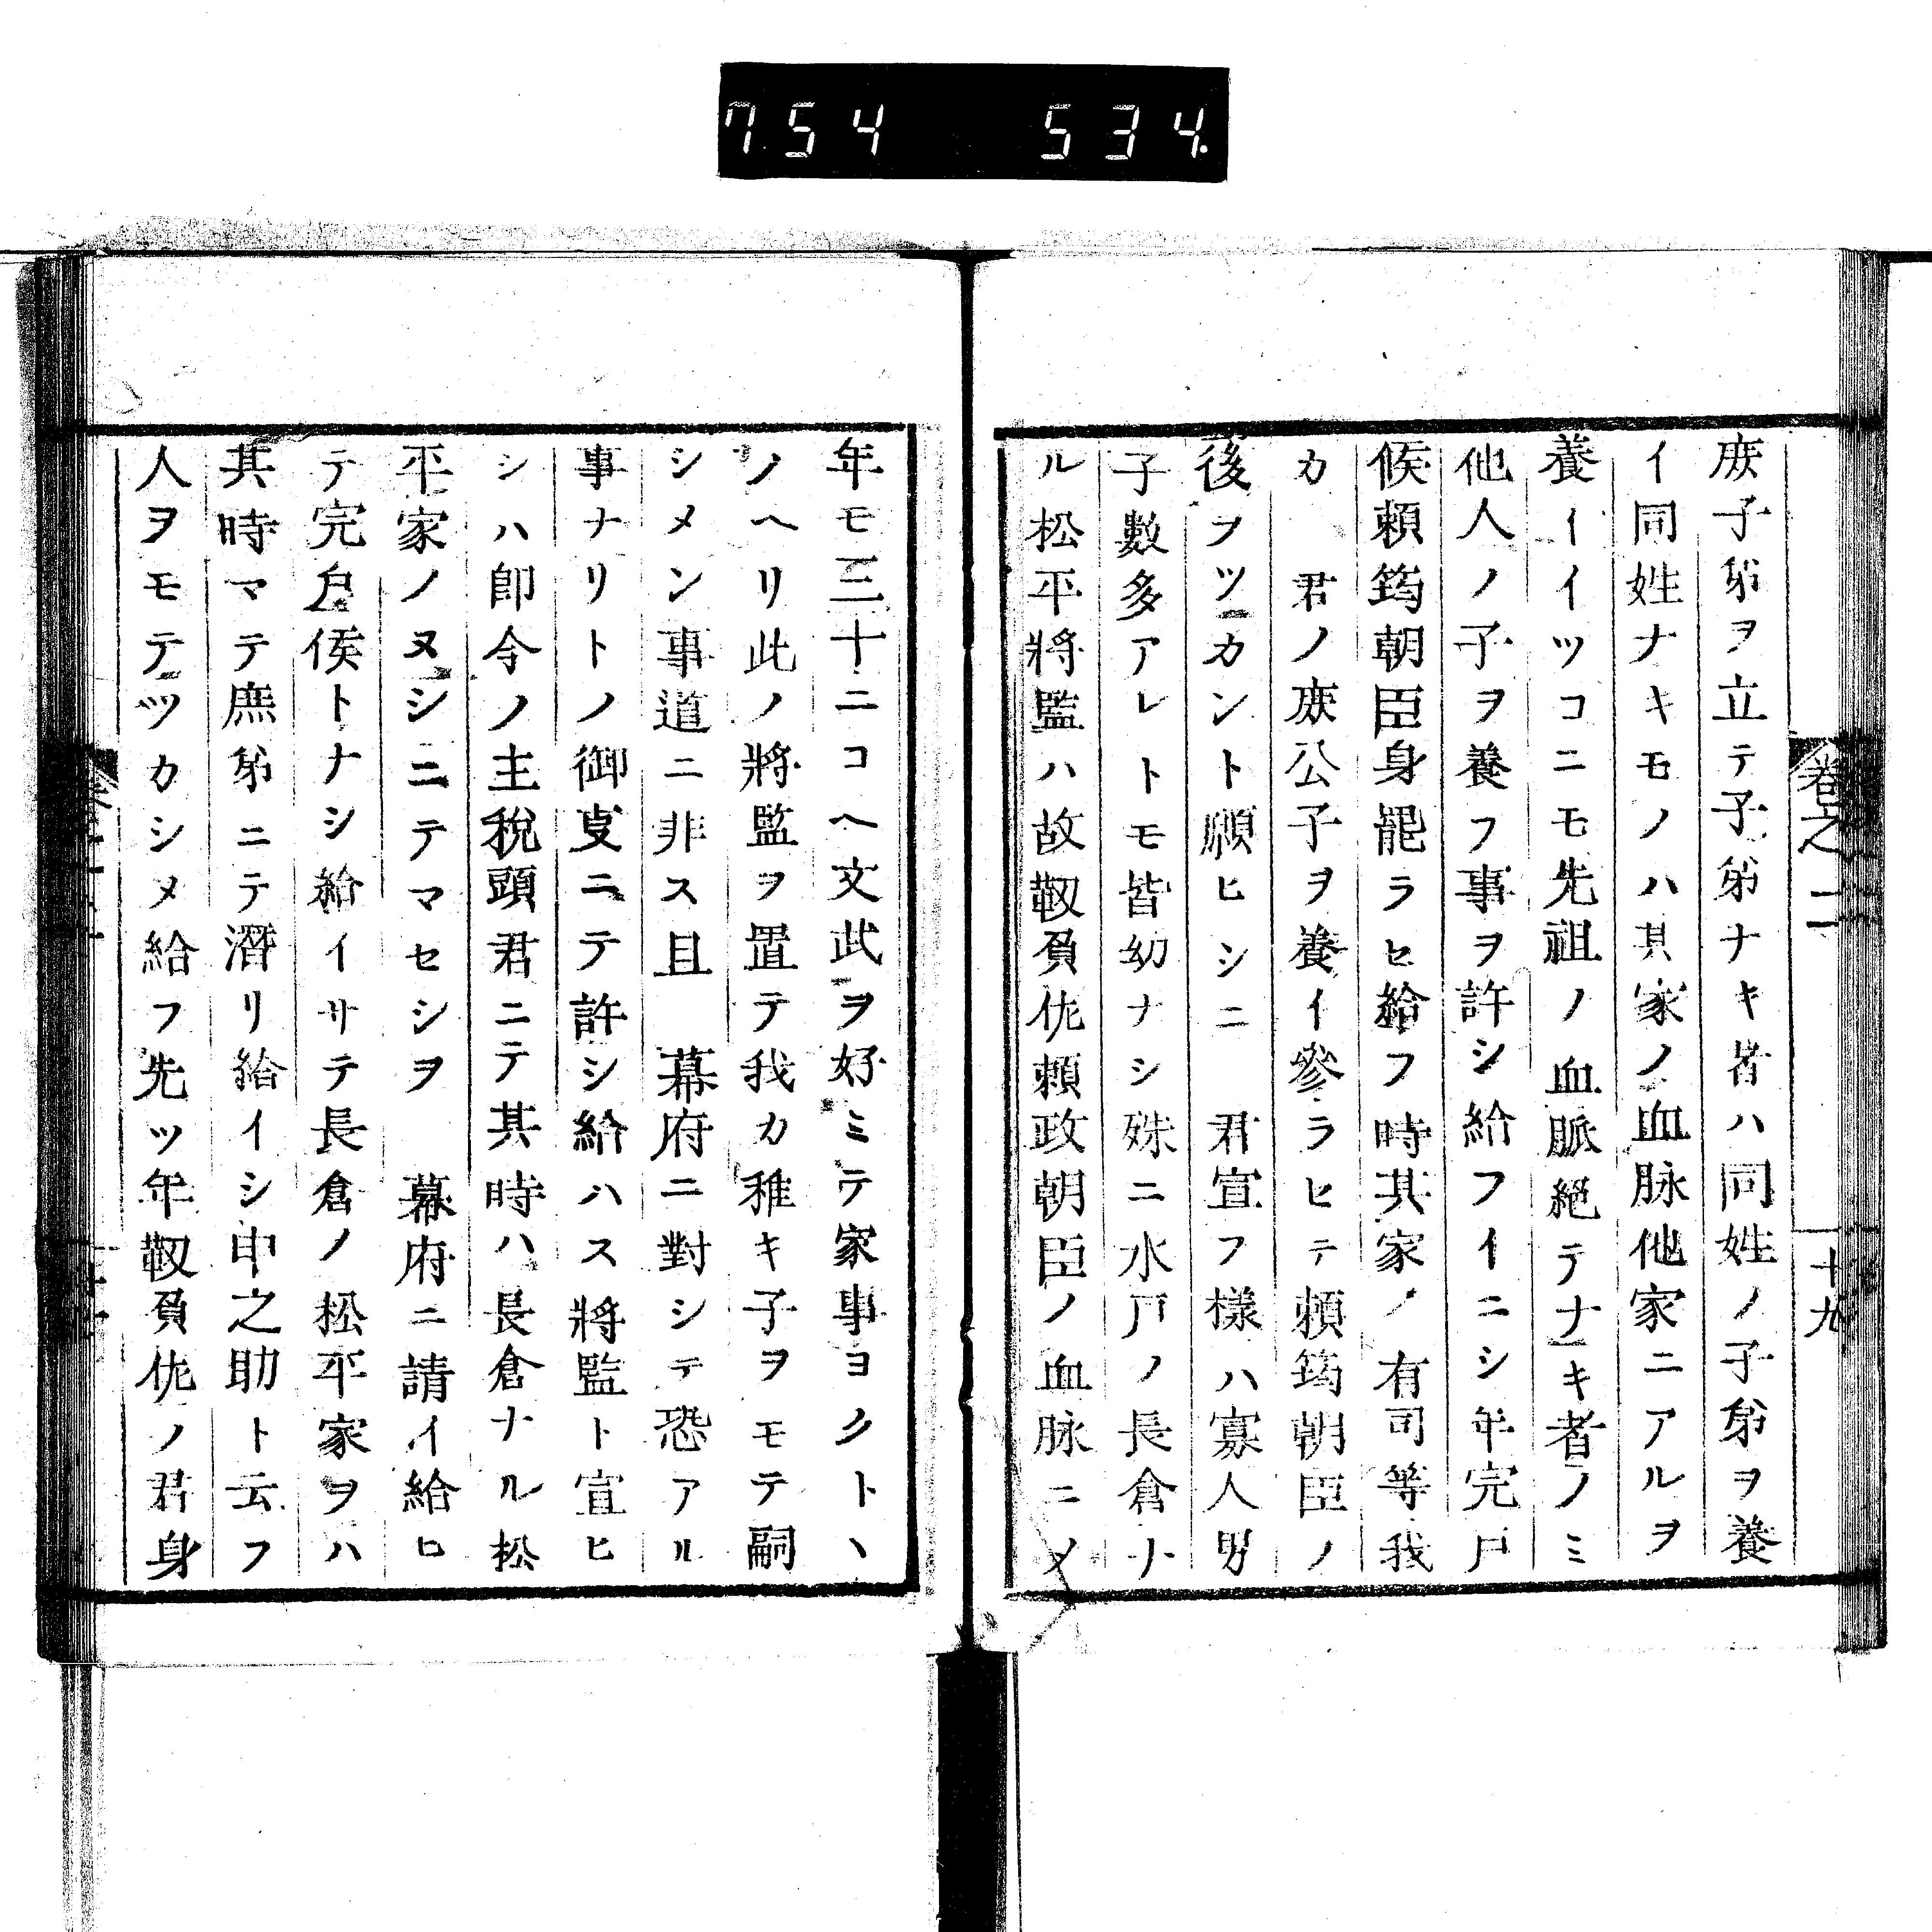 754 534.
卷之二 十九
庻子弟ヲ立テ子弟ナキ者ハ同姓ノ子弟ヲ養
イ同姓ナキモノハ其家ノ血脉他家ニアルヲ
養イイツコニモ先祖ノ血脈絕テナキ者ノミ
他人ノ子ヲ養フ事ヲ許シ給フイニシ年宍戸
候頼筠朝臣身罷ラセ給フ時其家ノ有司等我
カ 君ノ庻公子ヲ養イ參ラヒテ頼筠朝臣ノ
後ヲツカント願ヒシニ 君宣フ様ハ寡人男
子數多アレトモ皆幼ナシ殊ニ水戸ノ長倉ナ
ル松平將監ハ故靱負佐頼政朝臣ノ血脉ニメ
年モ三十ニコヘ文武ヲ好ミテ家事ヨクトヽ
ノヘリ此ノ將監ヲ置テ我カ稚キ子ヲモテ嗣
シメン事道ニ非ス且 幕府ニ對シテ恐アル
事ナリトノ御㕝ニテ許シ給ハス將監ト宣ヒ
シハ卽今ノ主稅頭君ニテ其時ハ長倉ナル松
平家ノヌシニテマセシヲ 幕府ニ請イ給ヒ
テ宍戸侯トナシ給イサテ長倉ノ松平家ヲハ
其時マテ庶弟ニテ潛リ給イシ申之助ト云フ
人ヲモテツカシメ給フ先ツ年靱負佐ノ君身